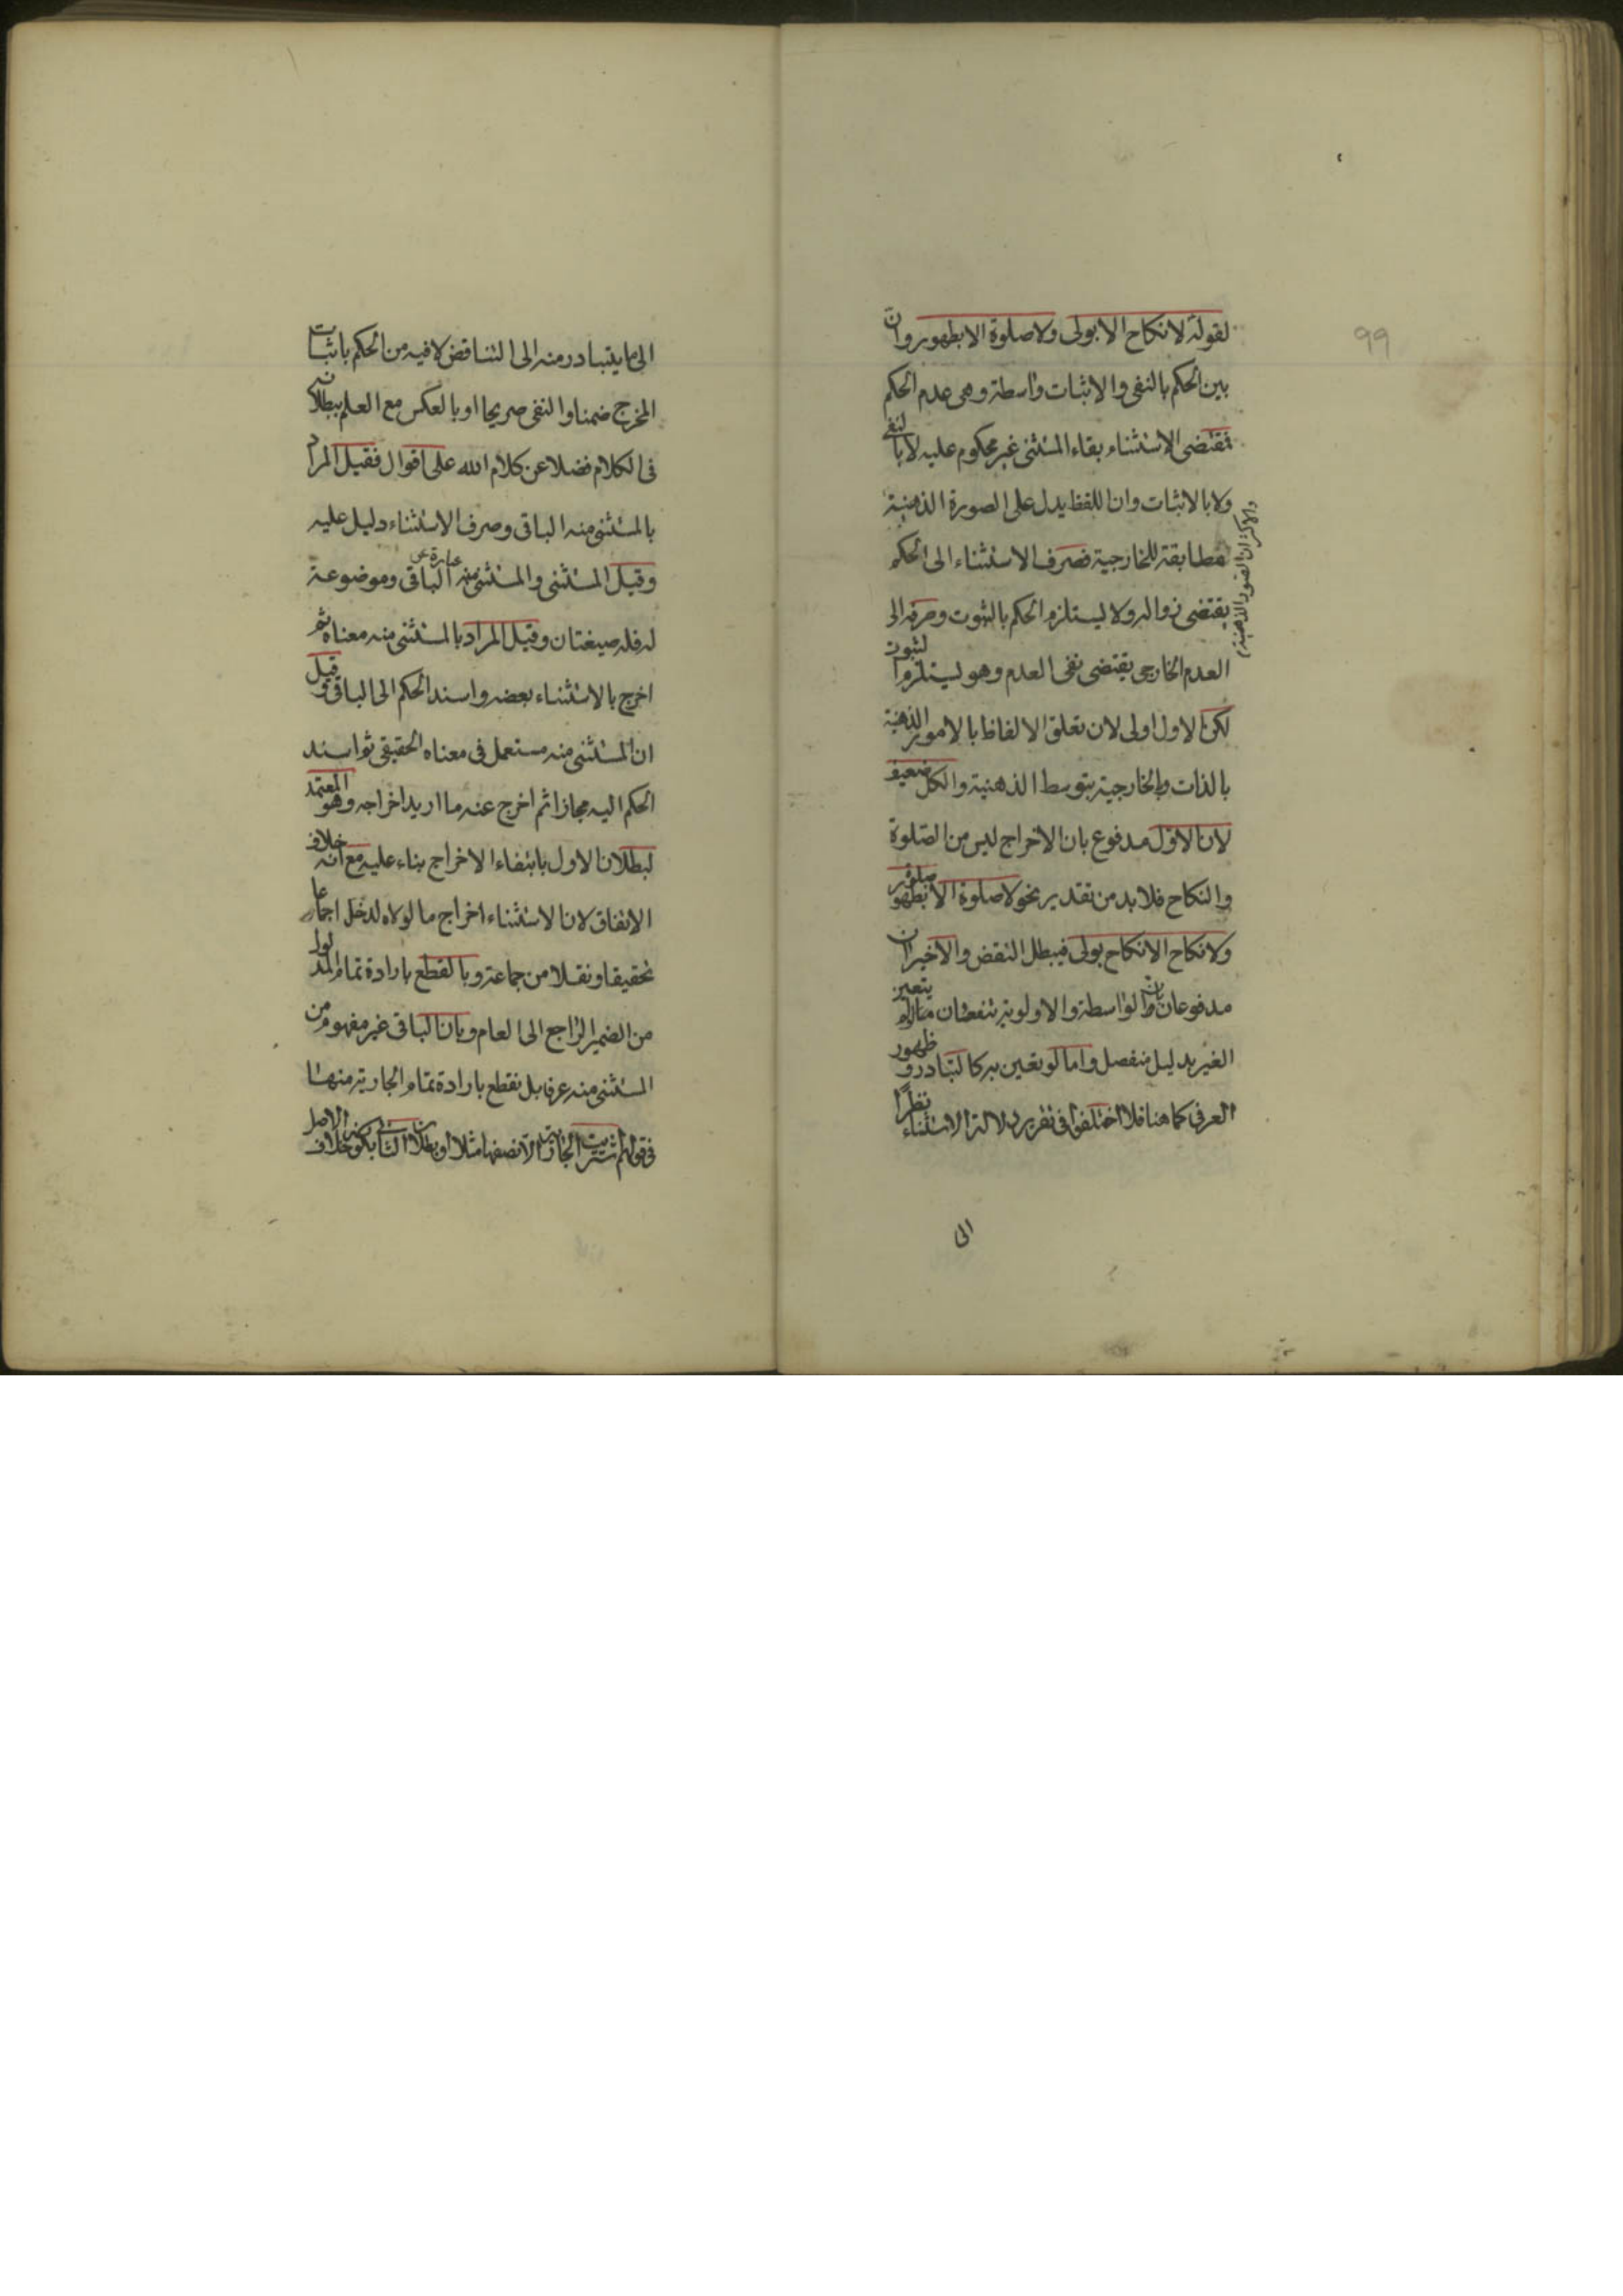 99
لقوله لا نكاح الا بولى ولا صلوة الا بطهور وان
بين الحكم بالنفى والاثبات واسطة وهى عدم الحكم
فقتضى الاستثناء بقاء المستثنى غير محكوم عليه لا بالنفى
ولا بالاثبات وان اللفظ يدل على الصورة الذهنية
مطابقة للخارجية فصرف الاستثناء الى الحكم
يقتضى زواله ولا يستلزم الحكم بالثبوت وصرفه الى
العدم الخارجى يقتضى نفى العدم وهو يستلزم الثبوت
لكن الاول اولى لان تعلق الالفاظ بالامور الذهنية
بالذات وبالخارجية بتوسط الذهنية والكل ضعيف
لان الاول مدفوع بان الاخراج ليس من الصلوة
والنكاح فلا بد من تقدير نحو لا صلوة الا صلوة بطهور
ولا نكاح الا نكاح بولى فيبطل النقض والاخيران
مدفوعان بان الواسطة والاولوية تنفعان ما لم يتعين
الغير بدليل منفصل واما لو تعين به كالتبادر وظهور
العرفى كما هنا فلا اختلفوا فى تقرير دلالة الاستثناء نظرا
والاكثر ان الصور الذهنية
الى
الى ما يتبادر منه الى التناقض لا فيه من الحكم باثبات
المخرج ضمنا والنفى صريحا او بالعكس مع العلم ببطلانه
فى الكلام فضلا عن كلام الله على اقوال فقيل المراد
بالمستثنى منه الباقى وصرف الاستثناء دليل عليه
وقيل المستثنى والمستثنى منه عبارة عن الباقى وموضوعة
له فله صيغتان وقيل المراد بالمستثنى منه معناه ثم
اخرج بالاستثناء بعضه واسند الحكم الى الباقى وقيل
ان المستثنى منه مستعمل فى معناه الحقيقى ثم اسند
الحكم اليه مجازا ثم اخرج عنه ما اريد اخراجه وهو المعتمد
لبطلان الاول بانتفاء الاخراج بناء عليه مع انه خلاف
الاتفاق لان الاستثناء اخراج ما لولاه لدخل اجماعا
تحقيقا ونقلا من جماعة وبالقطع بارادة تمام المدلول
من الضمير الراجع الى العام وبان الباقى غير مفهوم من
المستثنى منه عرفا بل نقطع بارادة تمام الجارية منها
فى قولهم اشتريت الجارية الا نصفها مثلا او بطلان الثانى بكونه خلاف الاصل